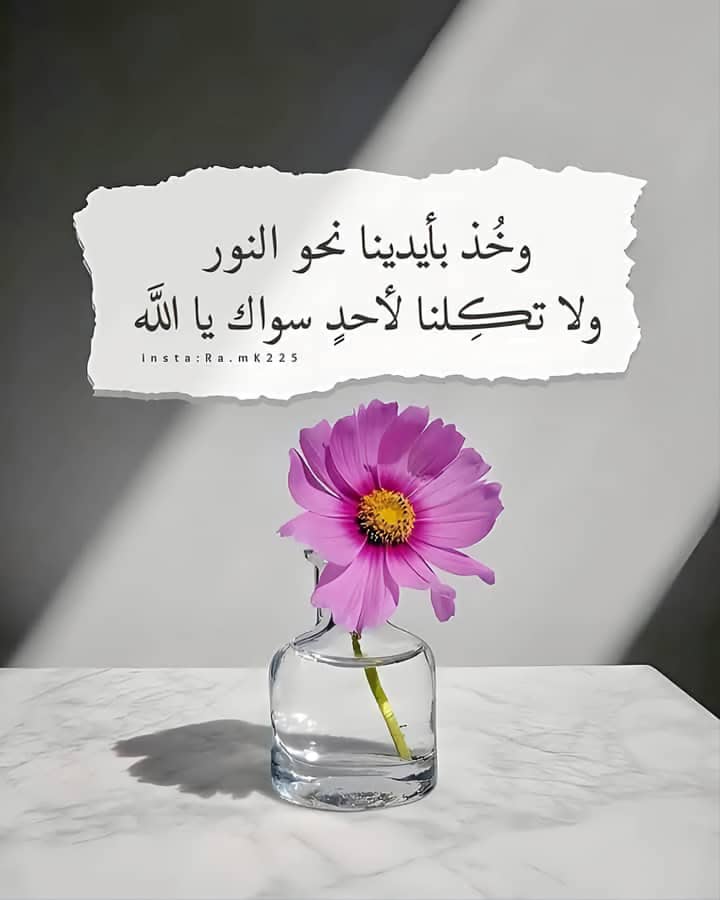 وخُذ بأيدينا نحو النور
ولا تكِلنا لأحدٍ سواك يا اللَّه
insta:Ra.mK225